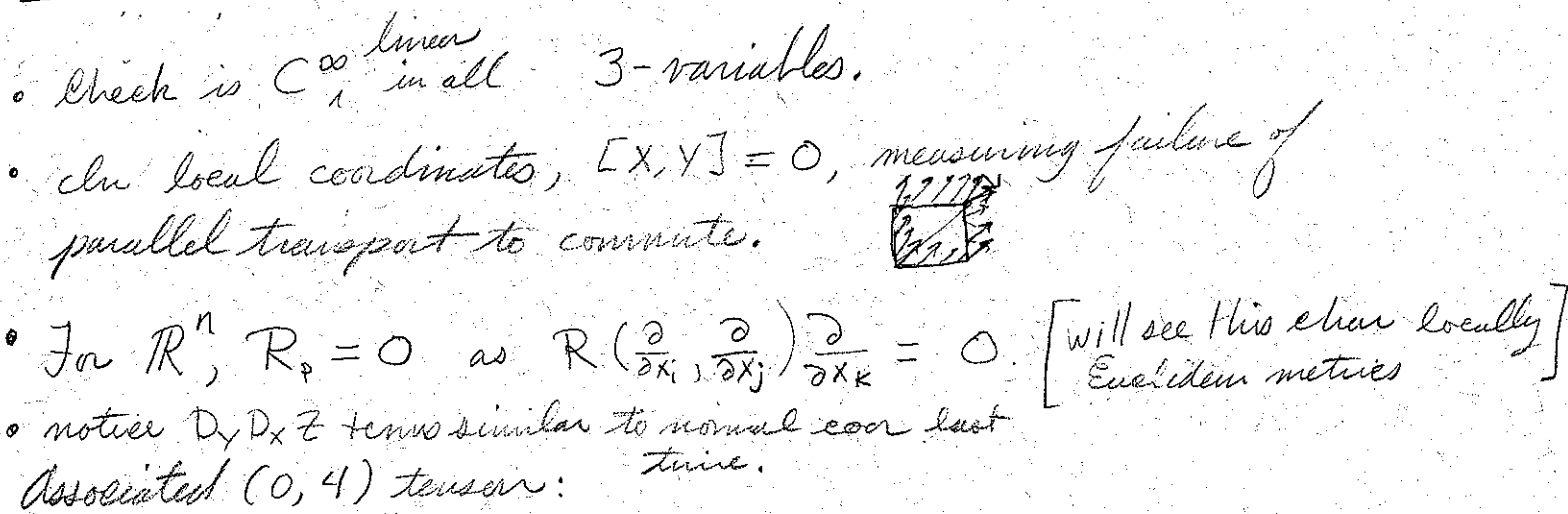 • Check is C^∞ linear in all 3-variables.
• In local coordinates, [X,Y] = 0, measuring failure of
parallel transport to commute.
• For ℝⁿ, R_p = 0 as R(∂/∂x_i, ∂/∂x_j) ∂/∂x_k = 0. [will see this char locally
Euclidean metrics]
• notice D_Y D_X Z terms similar to normal coor last
time.
Associated (0,4) tensor: